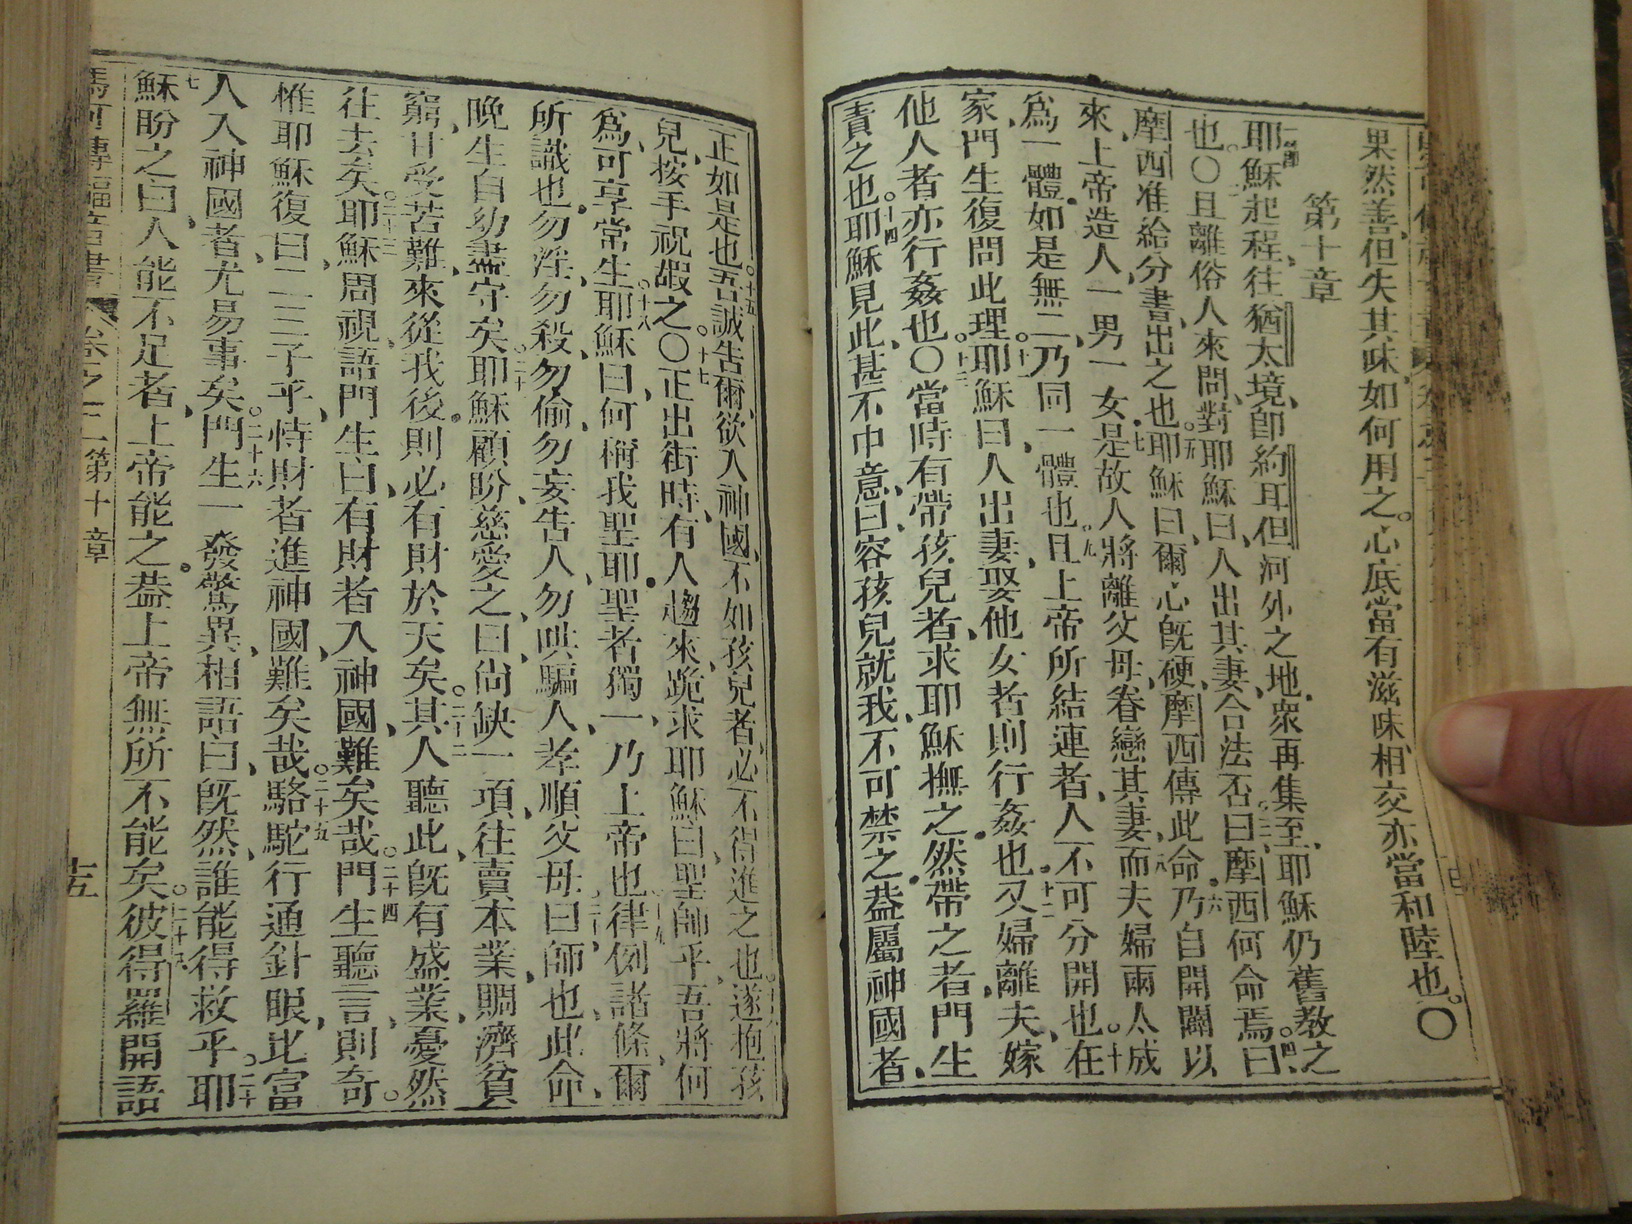 果然善但失其味如何用之心底當有滋味相交亦當和睦也〇
第十章
一節耶穌起程往猶太境卽約耳但河外之地衆再集至耶穌仍舊教之
也〇二且離俗人來問對耶穌曰人出其妻合法否三曰摩西何命焉四曰
摩西准給分書出之也五耶穌曰爾心旣硬摩西傳此命乃六自開闢以
來上帝造人一男一女七是故人將離父母眷戀其妻八而夫婦兩人成
爲一體如是無二乃同一體也九且上帝所結連者人不可分開也十在
家門生復問此理十一耶穌曰人出妻娶他女者則行姦也十二又婦離夫嫁
他人者亦行姦也〇十三當時有帶孩兒者求耶穌撫之然帶之者門生
責之也十四耶穌見此甚不中意曰容孩兒就我不可禁之葢屬神國者
正如是也十五吾誠告爾欲入神國不如孩兒者必不得進之也十六遂抱孩
兒按手祝嘏之〇十七正出街時有人趨來跪求耶穌曰聖師乎吾將何
爲可享常生十八耶穌曰何稱我聖耶聖者獨一乃上帝也十九律例諸條爾
所識也勿淫勿殺勿偷勿妄告人勿哄騙人孝順父母二十曰師也此命
晚生自幼盡守矣二十一耶穌顧盼慈愛之曰尚缺一項往賣本業賙濟貧
窮甘受苦難來從我後則必有財於天矣二十二其人聽此旣有盛業憂然
往去矣二十三耶穌周視語門生曰有財者入神國難矣哉二十四門生聽言則奇
惟耶穌復曰二三子乎恃財者進神國難矣哉二十五駱駝行通針眼比富
人入神國者尤易事矣二十六門生一發驚異相語曰旣然誰能得救乎二十七耶
穌盼之曰人能不足者上帝能之葢上帝無所不能矣二十八彼得羅開語
馬可傳福音書 卷之二 第十章 十五